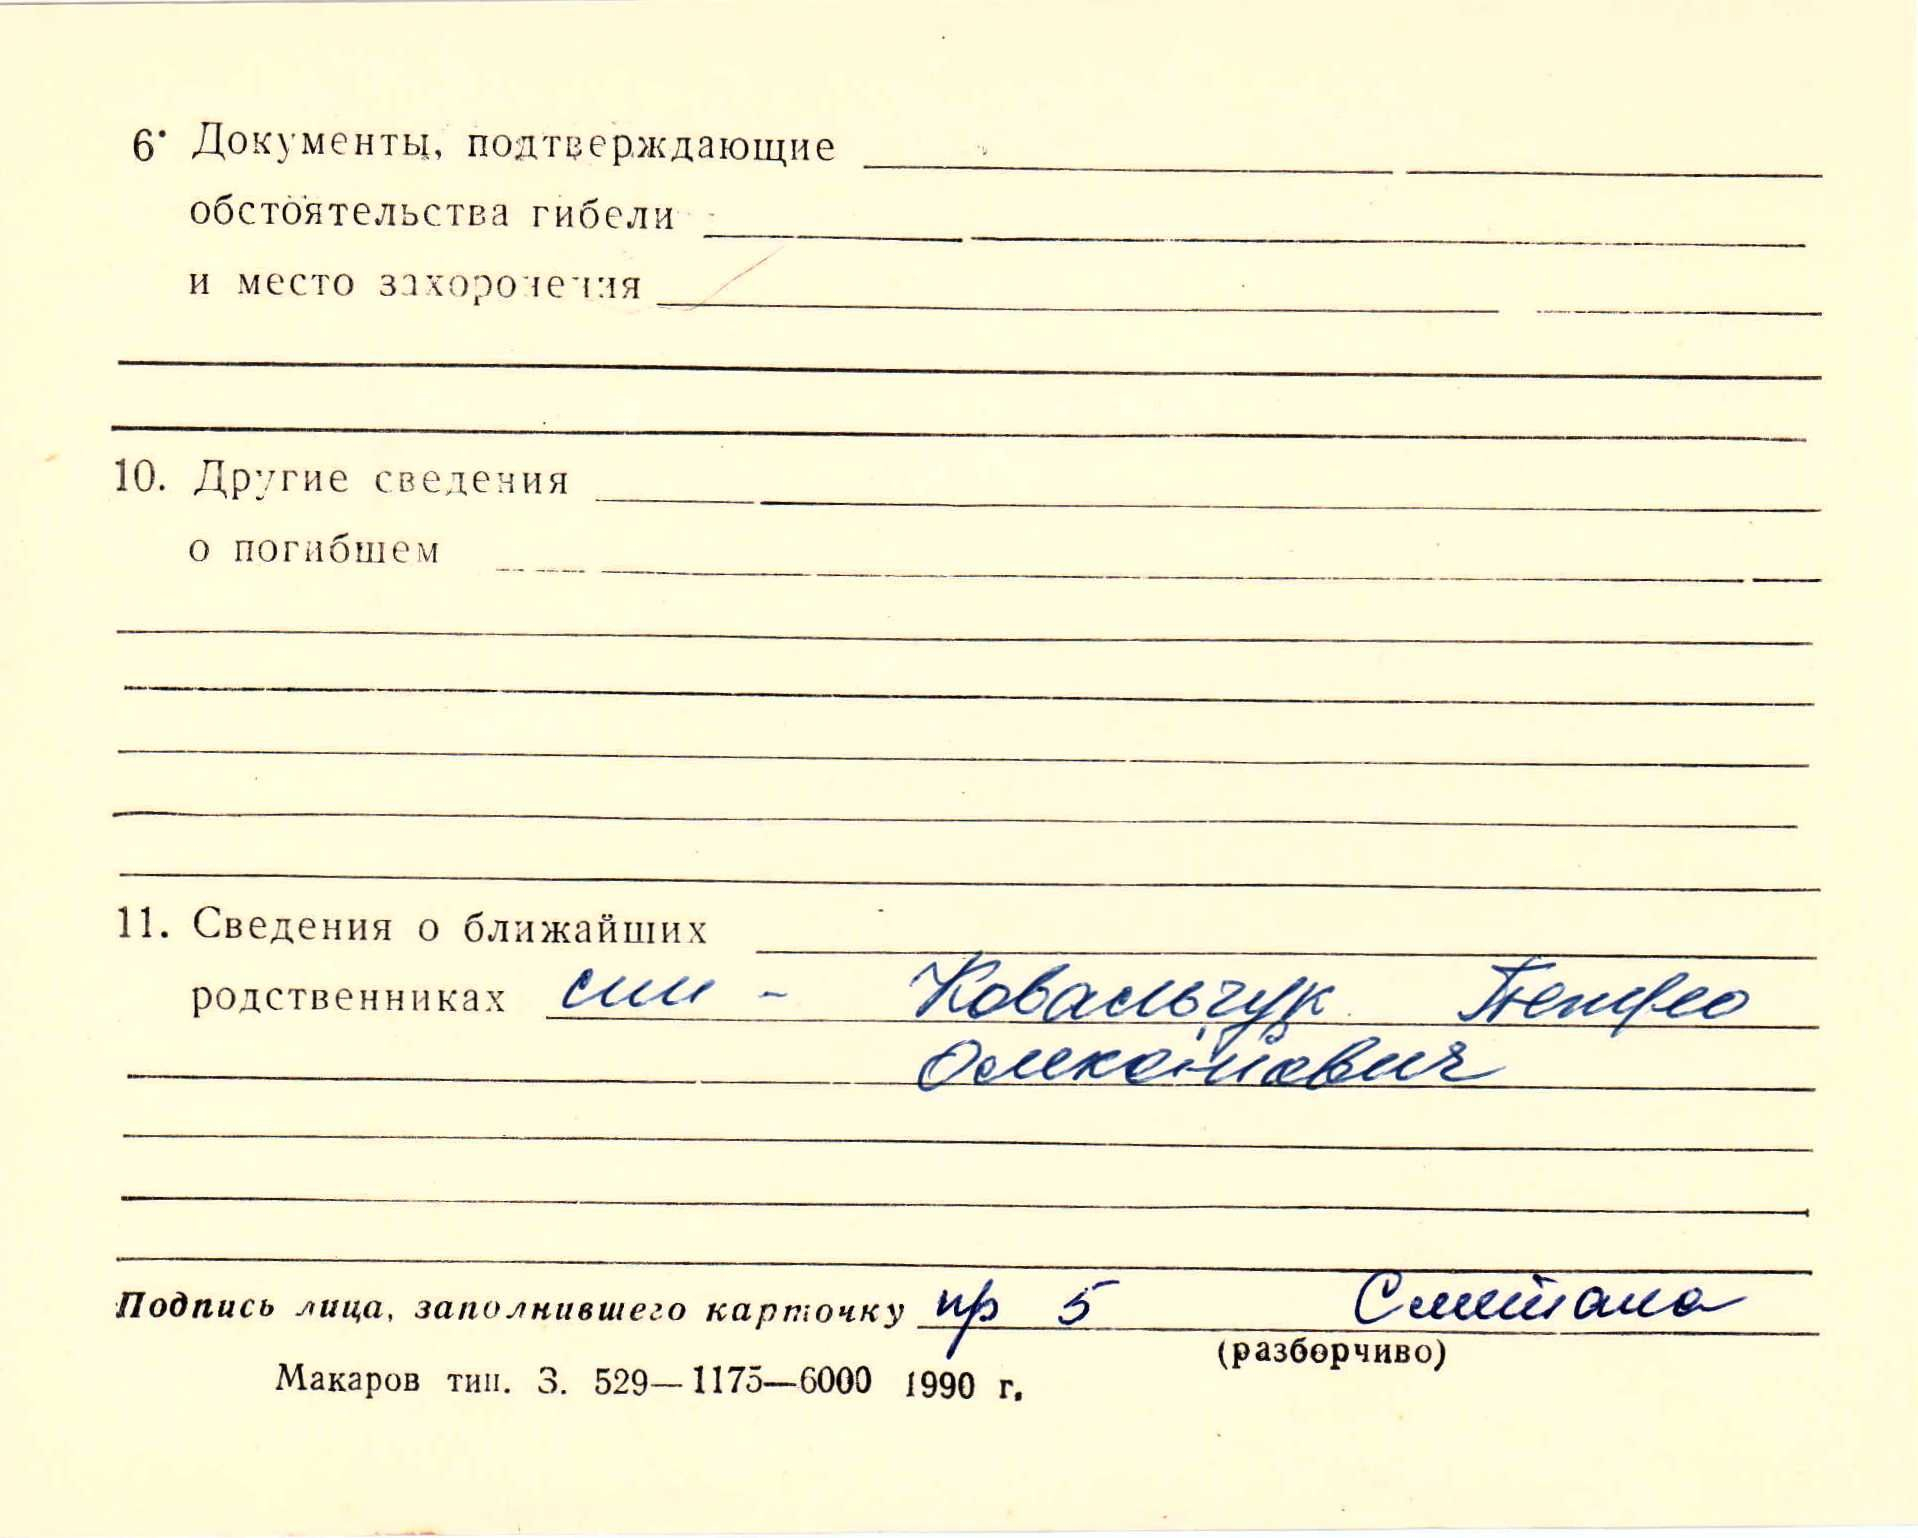 6. Документы, подтверждающие
обстоятельства гибели
и место захоронения
10. Другие сведения
о погибшем
11. Сведения о ближайших
родственниках син - Ковальчук Петро
Подпись лица, заполнившего карточку пр 5 Сметана
(разборчиво)
Макаров тип. З. 529—1175—6000 1990 г.